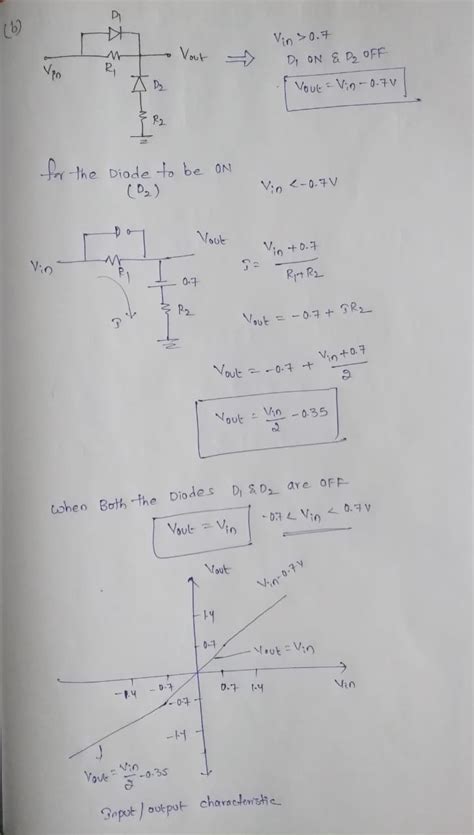 (b)
D1
Vin
R1
Vout
D2
R2
⇒
Vin > 0.7
D1 ON & D2 OFF
Vout = Vin - 0.7V
for the Diode to be ON
(D2)
Vin < -0.7V
D
Vin
R1
Vout
0.7
R2
I
I = (Vin + 0.7)/(R1 + R2)
Vout = -0.7 + IR2
Vout = -0.7 + (Vin + 0.7)/2
Vout = Vin/2 - 0.35
When Both the Diodes D1 & D2 are OFF
Vout = Vin
-0.7 < Vin < 0.7V
Vout
Vin-0.7V
1.4
0.7
Vout = Vin
-1.4
-0.7
0.7
1.4
Vin
-0.7
-1.4
Vout = Vin/2 - 0.35
Input/output characteristic